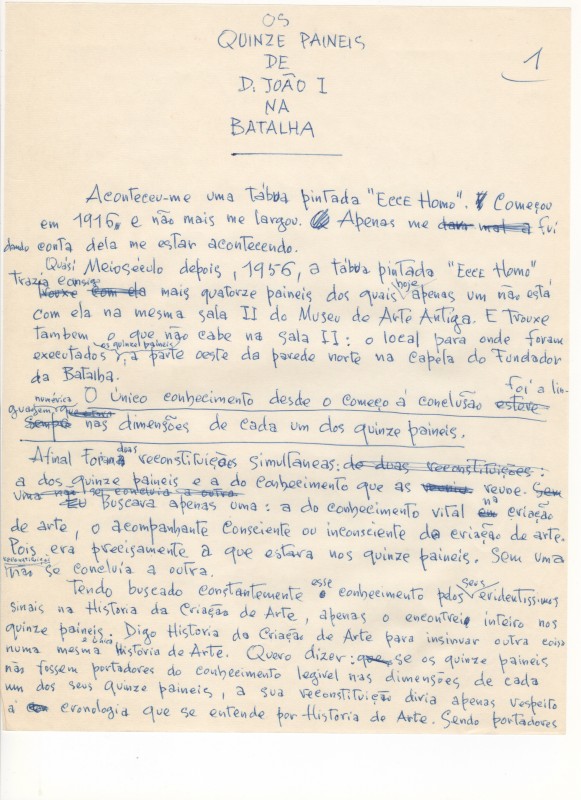 OS
QUINZE PAINEIS
DE
D. JOÃO I
NA
BATALHA
1
Aconteceu-me uma tábua pintada "Ecce Homo". Começou
em 1916, e não mais me largou. Apenas me fui
dando conta dela me estar acontecendo.
Quási Meioséculo depois, 1956, a tábua pintada "Ecce Homo"
Trazia consigo mais quatorze paineis dos quais hoje apenas um não está
com ela na mesma sala II do Museu de Arte Antiga. E Trouxe
tambem o que não cabe na sala II: o local para onde foram
executados os quinze paineis, a parte oeste da parede norte na Capela do Fundador
da Batalha.
O único conhecimento desde o começo à conclusão foi a lin-
guagem numérica nas dimensões de cada um dos quinze paineis.
Afinal foram duas reconstituições simultaneas:
a dos quinze paineis e a do conhecimento que as reune.
Eu buscava apenas uma: a do conhecimento vital na criação
de arte, o acompanhante consciente ou inconsciente da criação de arte.
Pois era precisamente a que estava nos quinze paineis. Sem uma
reconstituição não se concluia a outra.
Tendo buscado constantemente esse conhecimento pelos seus evidentissimos
sinais na Historia da Criação de Arte, apenas o encontrei inteiro nos
quinze paineis. Digo Historia da Criação de Arte para insinuar outra coisa
numa mesma Historia de Arte. Quero dizer: se os quinze paineis
não fossem portadores do conhecimento legivel nas dimensões de cada
um dos seus quinze paineis, a sua reconstituição diria apenas respeito
à cronologia que se entende por Historia de Arte. Sendo portadores